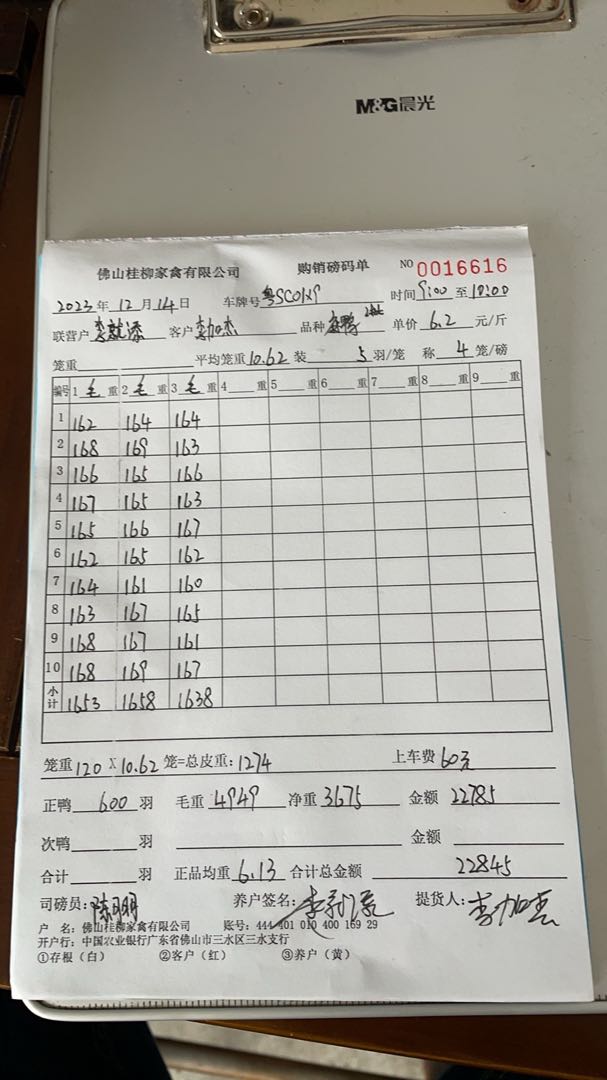 M&G晨光
佛山桂柳家禽有限公司 购销磅码单 NO 0016616
2023年12月14日 车牌号 时间9:00至10:00
联营户 客户李加杰 品种 单价6.2元/斤
笼重 平均笼重10.62装 5羽/笼 称4笼/磅
编号 1毛重 2毛重 3毛重 4重 5重 6重 7重 8重 9重
1 162 164 164
2 168 169 163
3 166 165 166
4 167 165 163
5 165 166 167
6 162 165 162
7 164 161 160
8 163 167 165
9 168 167 161
10 168 169 167
小计 1653 1658 1638
笼重120X10.62笼=总皮重:1274 上车费60元
正鸭600羽 毛重4949 净重3675 金额22785
次鸭 羽 金额
合计 羽 正品均重6.13 合计总金额 22845
司磅员: 养户签名: 提货人:李加杰
户 名:佛山桂柳家禽有限公司 账号:444 401 010 400 169 29
开户行:中国农业银行广东省佛山市三水区三水支行
①存根（白） ②客户（红） ③养户（黄）